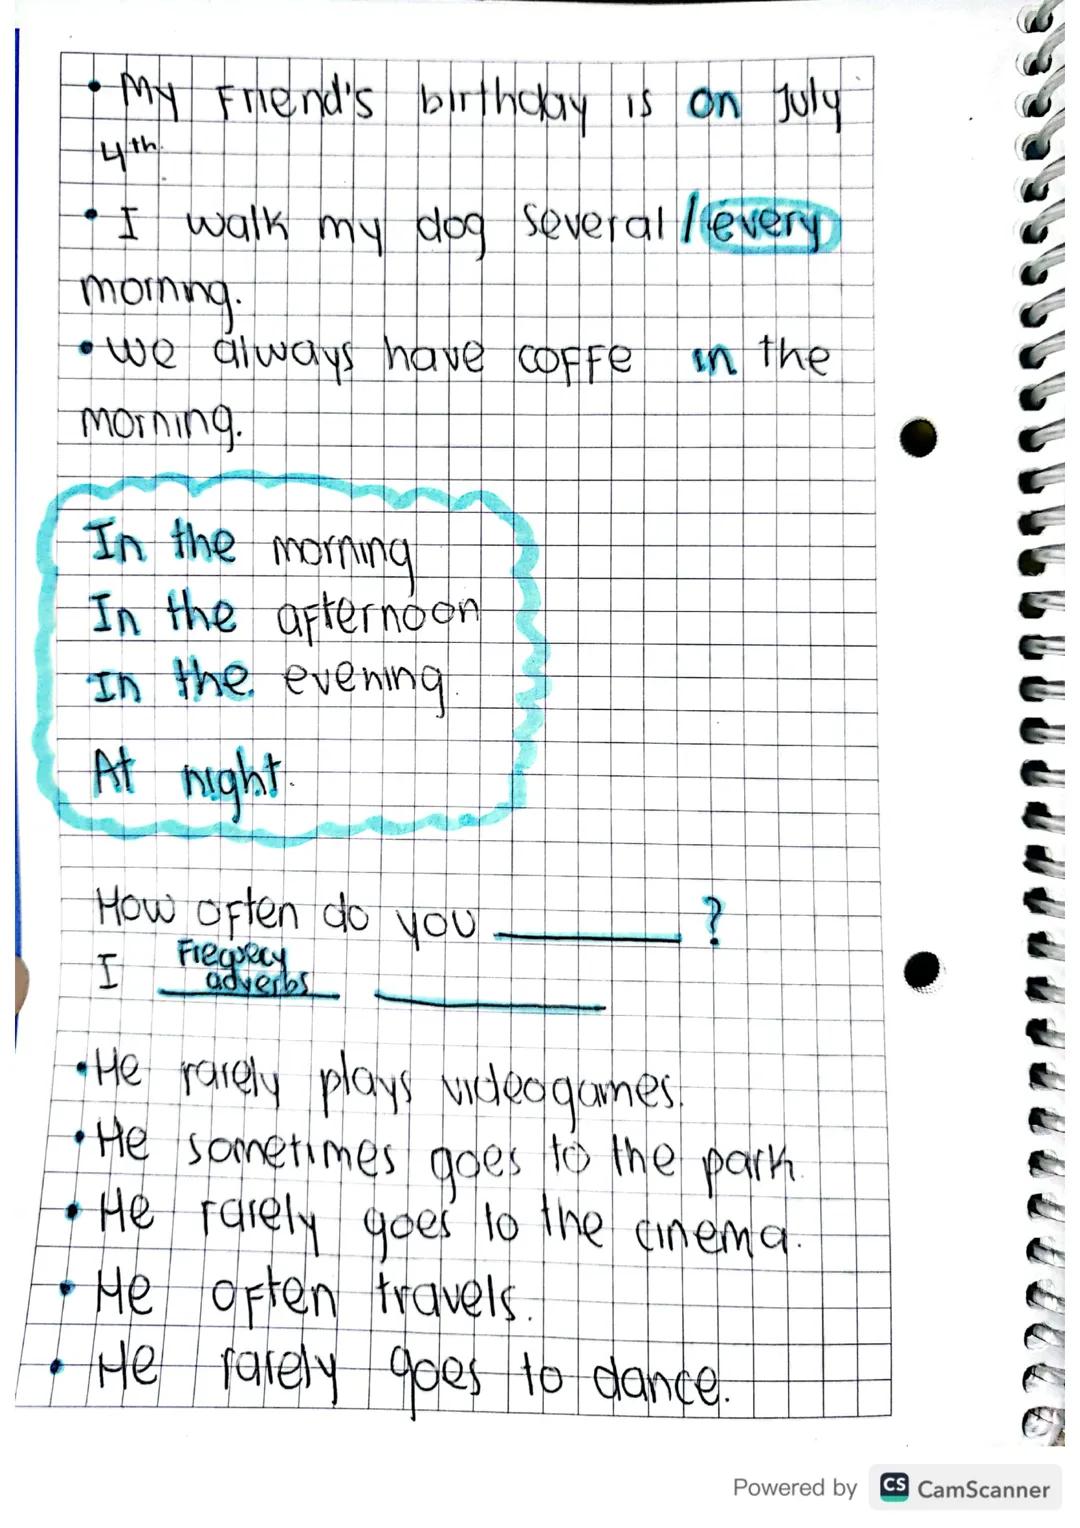 • My Friend's birthday is on July
4th.
• I walk my dog several / every
morning.
• We always have coffe in the
morning.
In the morning
In the afternoon
In the evening.
At night.
How often do you ________ ?
I Frequecy
adverbs ________
• He rarely plays videogames.
• He sometimes goes to the park.
• He rarely goes to the cinema.
• He often travels.
• He rarely goes to dance.
Powered by CS CamScanner